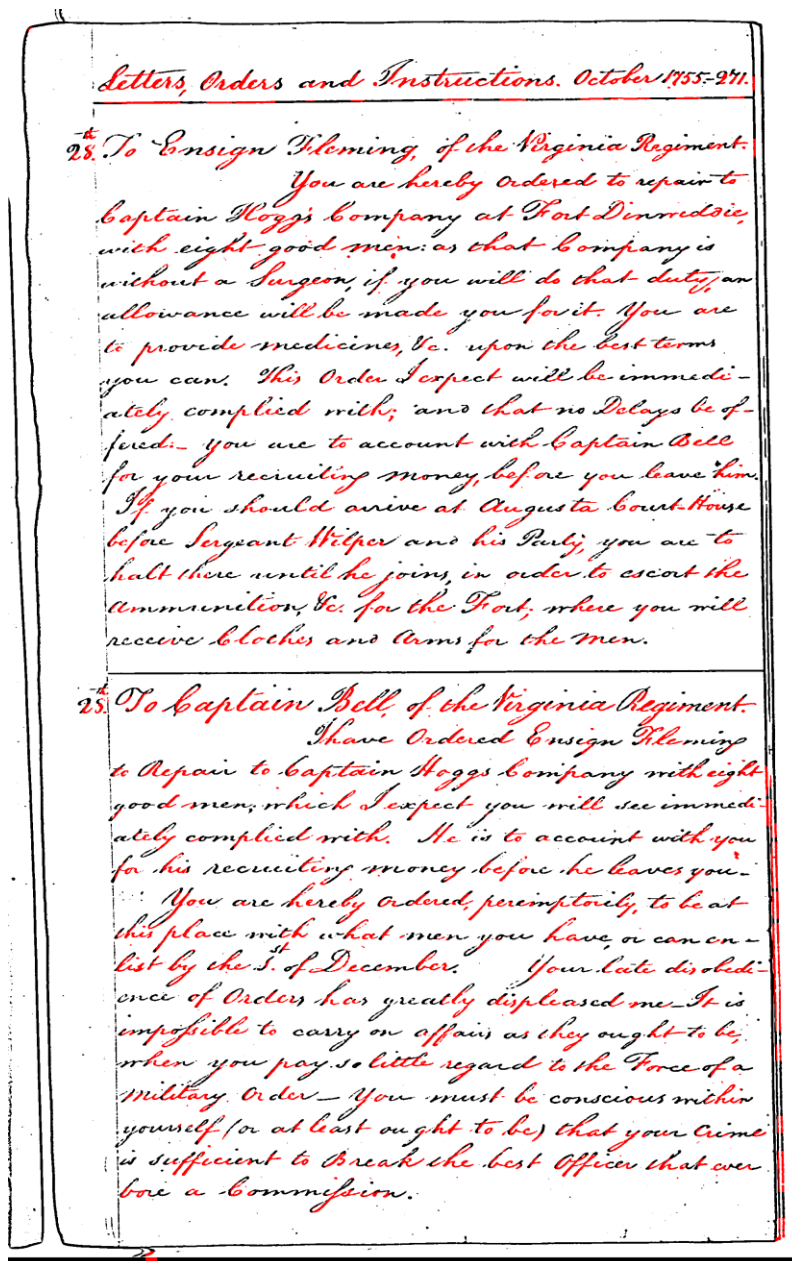 Letters, Orders and Instructions. October 1755.-271.
28.th To Ensign Fleming, of the Virginia Regiment.
You are hereby Ordered to repair to
Captain Hogg's Company at Fort Dinwiddie,
with eight good men: as that Company is
without a Surgeon, if you will do that duty, an
allowance will be made you for it. You are
to provide medicines, &c. upon the best terms
you can. This Order I expect will be immedi-
ately complied with; and that no Delays be of-
fered.- you are to account with Captain Bell
for your recruiting money, before you leave him.
If you should arrive at Augusta Court-House
before Sergeant Wilper and his Party, you are to
halt there until he joins, in order to escort the
Ammunition, &c. for the Fort; where you will
receive Clothes and Arms for the Men.
28.th To Captain Bell, of the Virginia Regiment.
I have Ordered Ensign Fleming
to Repair to Captain Hoggs Company with eight
good men; which I expect you will see immedi-
ately complied with. He is to account with you
for his recruiting money before he leaves you-
You are hereby Ordered, peremptorily, to be at
this place with what men you have, or can en-
list by the 1.st of December. Your late disobedi-
ence of Orders has greatly displeased me_ It is
impossible to carry on affairs as they ought to be,
when you pay so little regard to the Force of a
Military Order_ You must be conscious within
yourself (or at least ought to be) that your Crime
is sufficient to Break the best Officer that ever
bore a Commission.